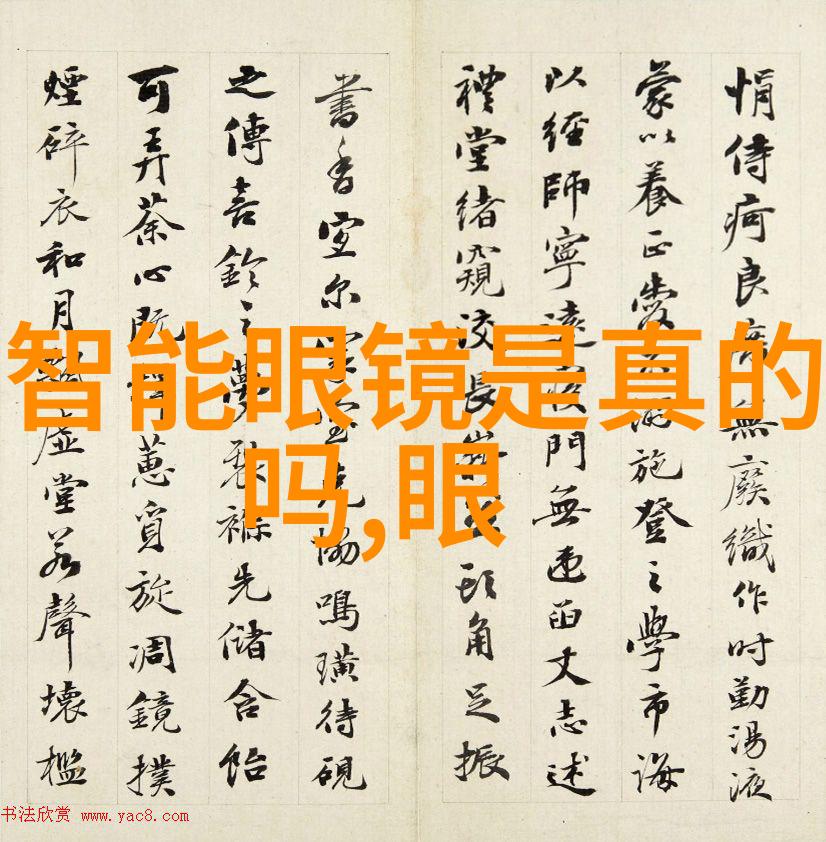 智能眼镜是真的
吗,眼
侍疴良無廢織作时勤湯液
蒙以養正施登之學市海
以經師寧遠門無丈志述
禮堂緒窺洨長角足振
書香室尔鳴璜待硯
之傳喜鈴之夢先儲含飴
可弄茶心既蕙質旋凋鏡撲
煙碎衣和月虛堂若聲壞檻
书法欣赏 www.yac8.com